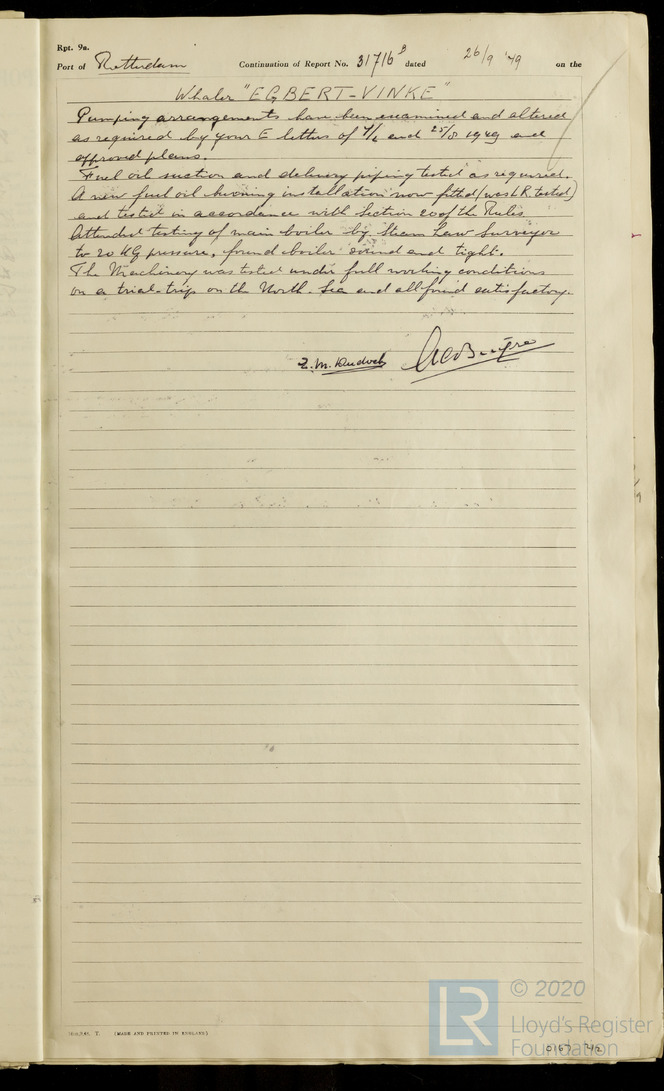 Rpt. 9a.
Port of Rotterdam Continuation of Report No. 31716 B dated 26/9 '49 on the
Whaler "EGBERT-VINKE"
Pumping arrangements have been examined and altered
as required by your E letters of and 25/8 1949 and
approved plans.
Fuel oil suction and delivery piping tested as required.
A new fuel oil burning installation now fitted (was L.R. tested)
and tested in accordance with Section 20 of the Rules
Attended testing of main boiler by Steam Law Surveyor
to 20 KG pressure, found boiler sound and tight.
The Machinery was tested under full working conditions
on a trial-trip on the North-Sea and all found satisfactory.
[MADE AND PRINTED IN ENGLAND]
LR © 2020
Lloyd's Register
Foundation